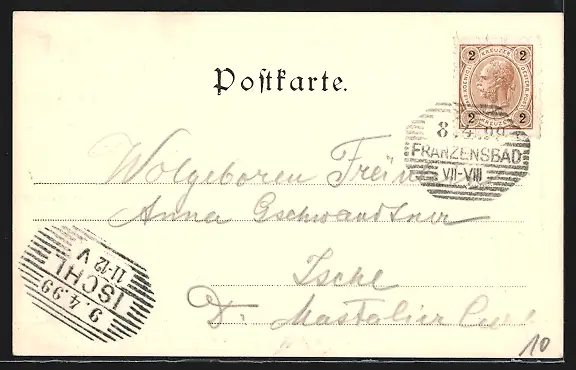 2 KREUZER 2
2 KREUZER 2
Postkarte.
8.4.99
FRANZENSBAD
VII-VIII
Wolgeboren Freiin
Anna Gschwandtner
Ischl
D. Mastalier
9.4.99
ISCHL
11-12 V
10